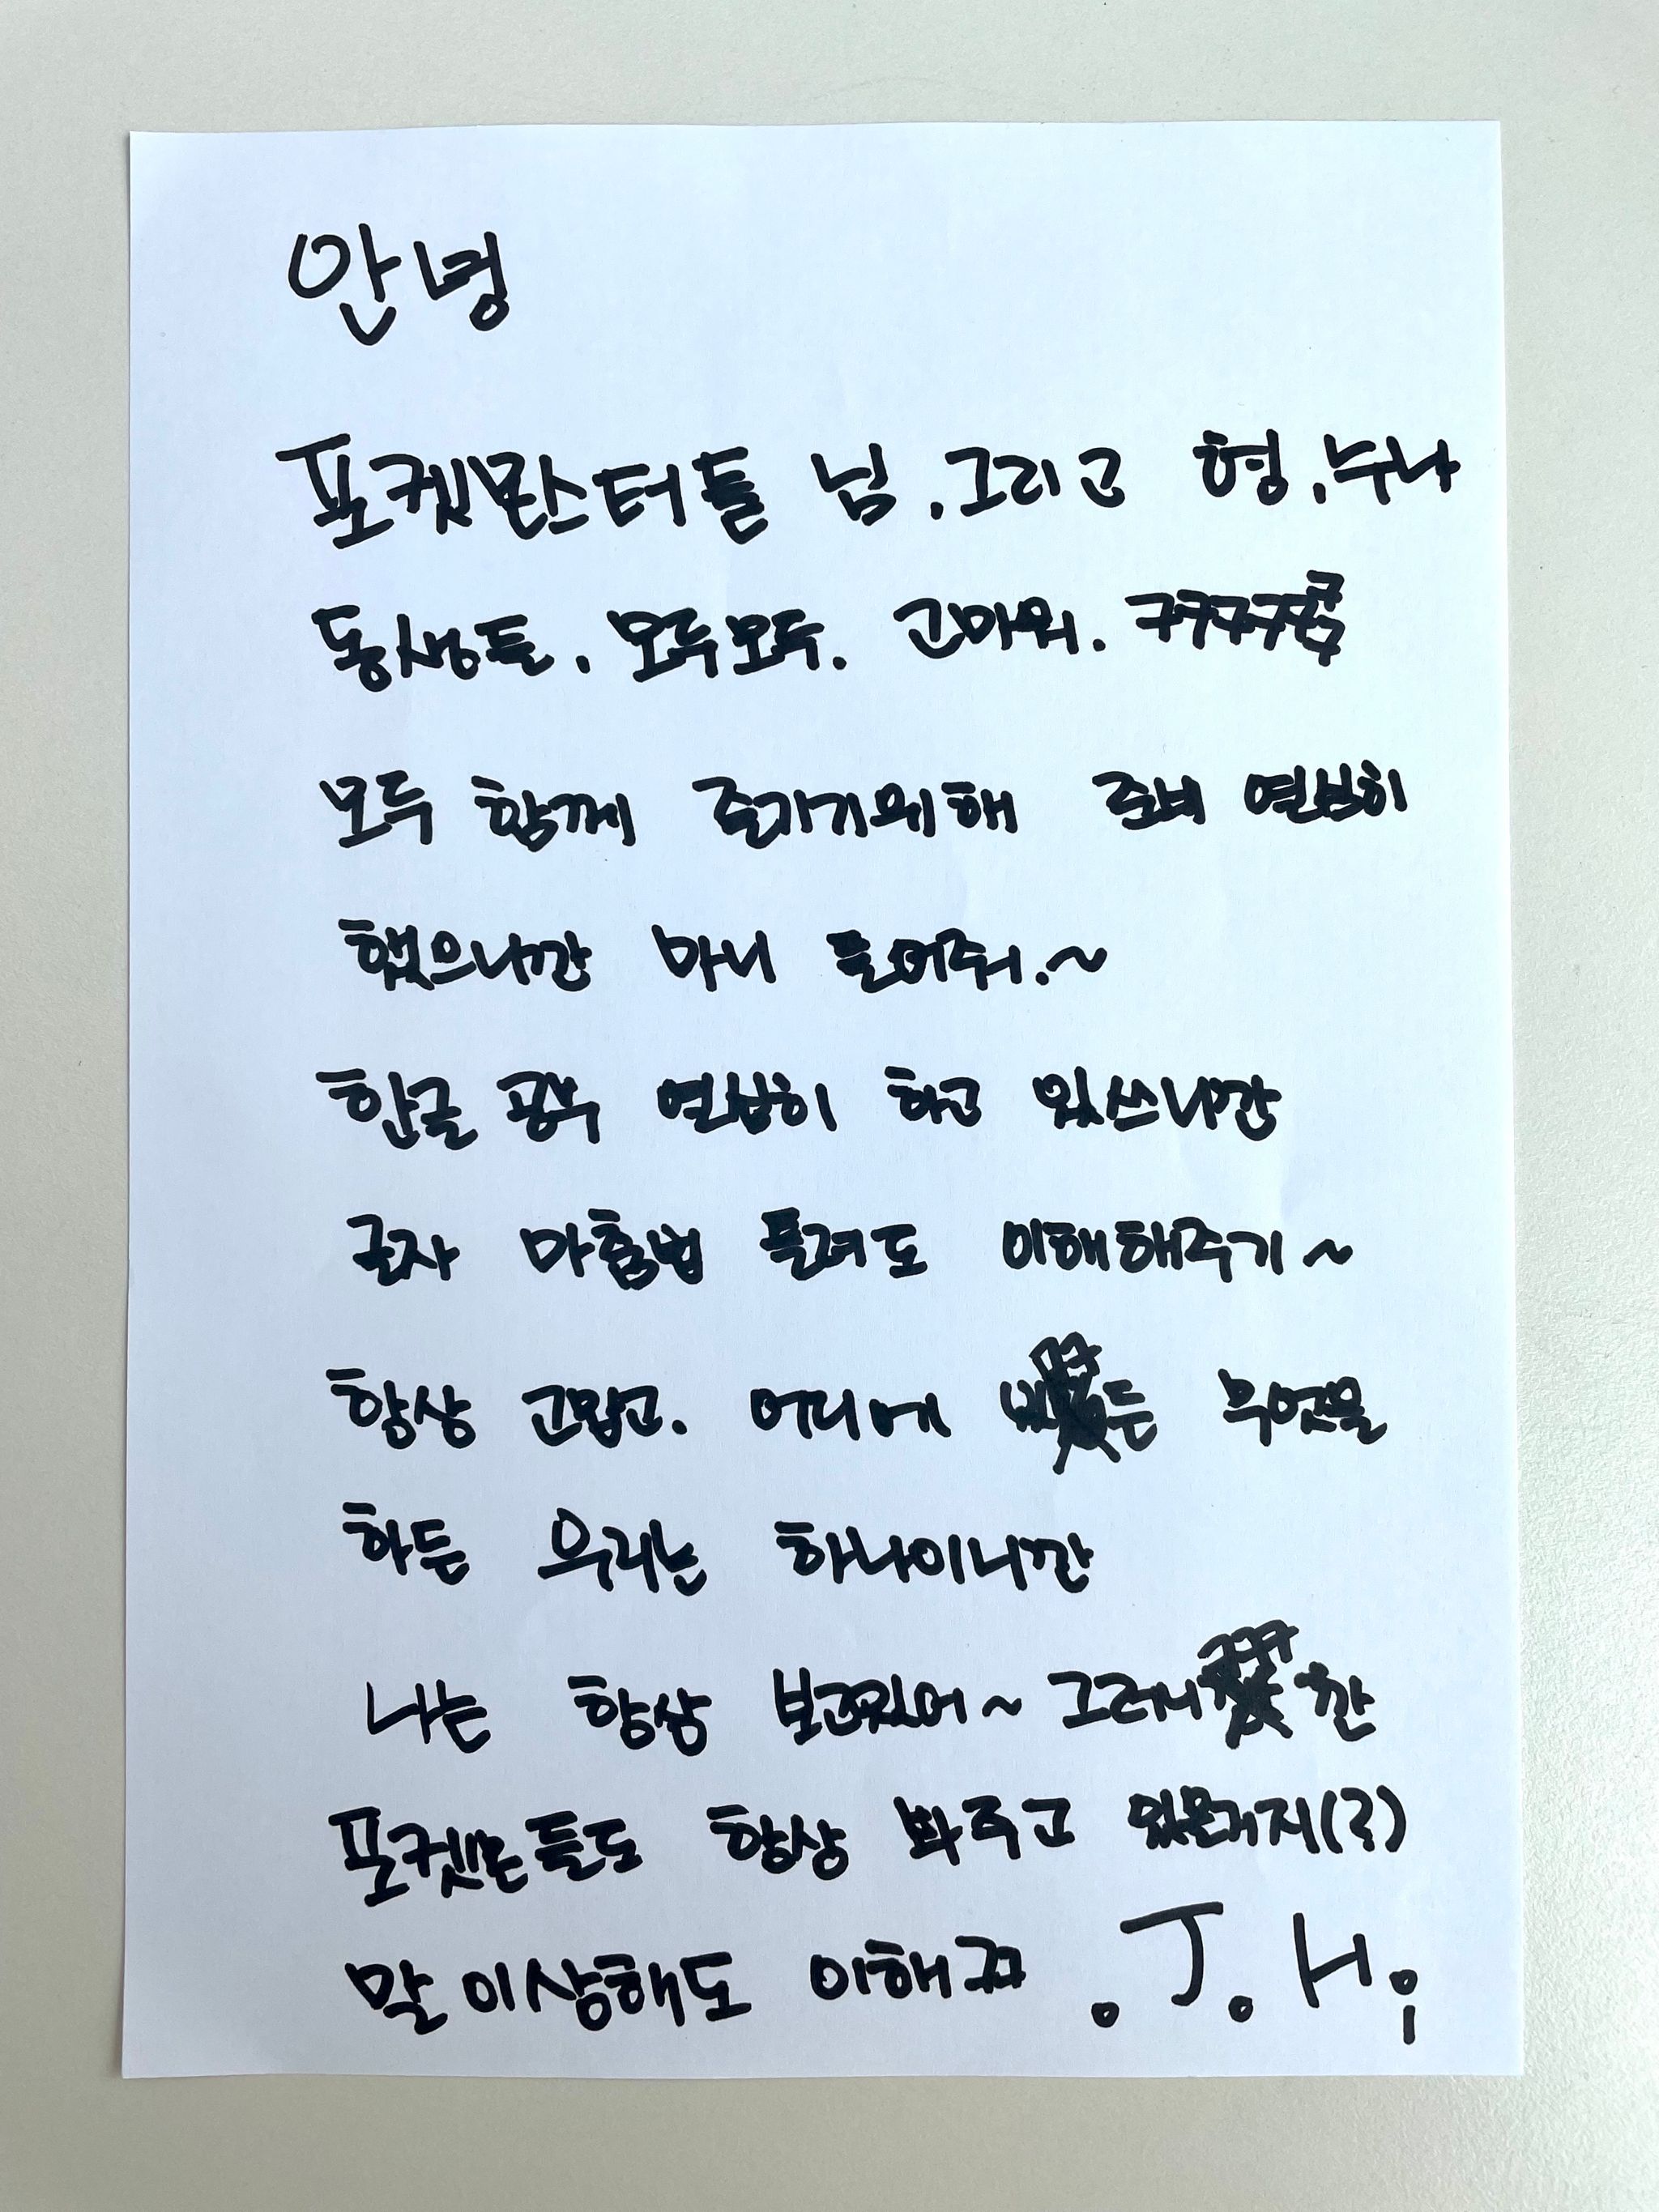 안녕
포켓몬스터들 님.그리고 형.누나
동생들. 모두모두. 고마워. ㅋㅋㅋㅋ
모두 함께 즐가기위해 준비 연심히
했으니깐 마니 들어줘.~
한글 공부 연심히 하고 있쓰니깐
글자 마춤법 틀려도 이해해주기~
항상 고맙고. 어디에 든 무언을
하든 우리는 하나이니깐
나는 항상 보고있어~ 그러니 깐
포켓몬들도 항상 봐주고 있는거지(?)
말이상해도 이해ㄲ .J.H.